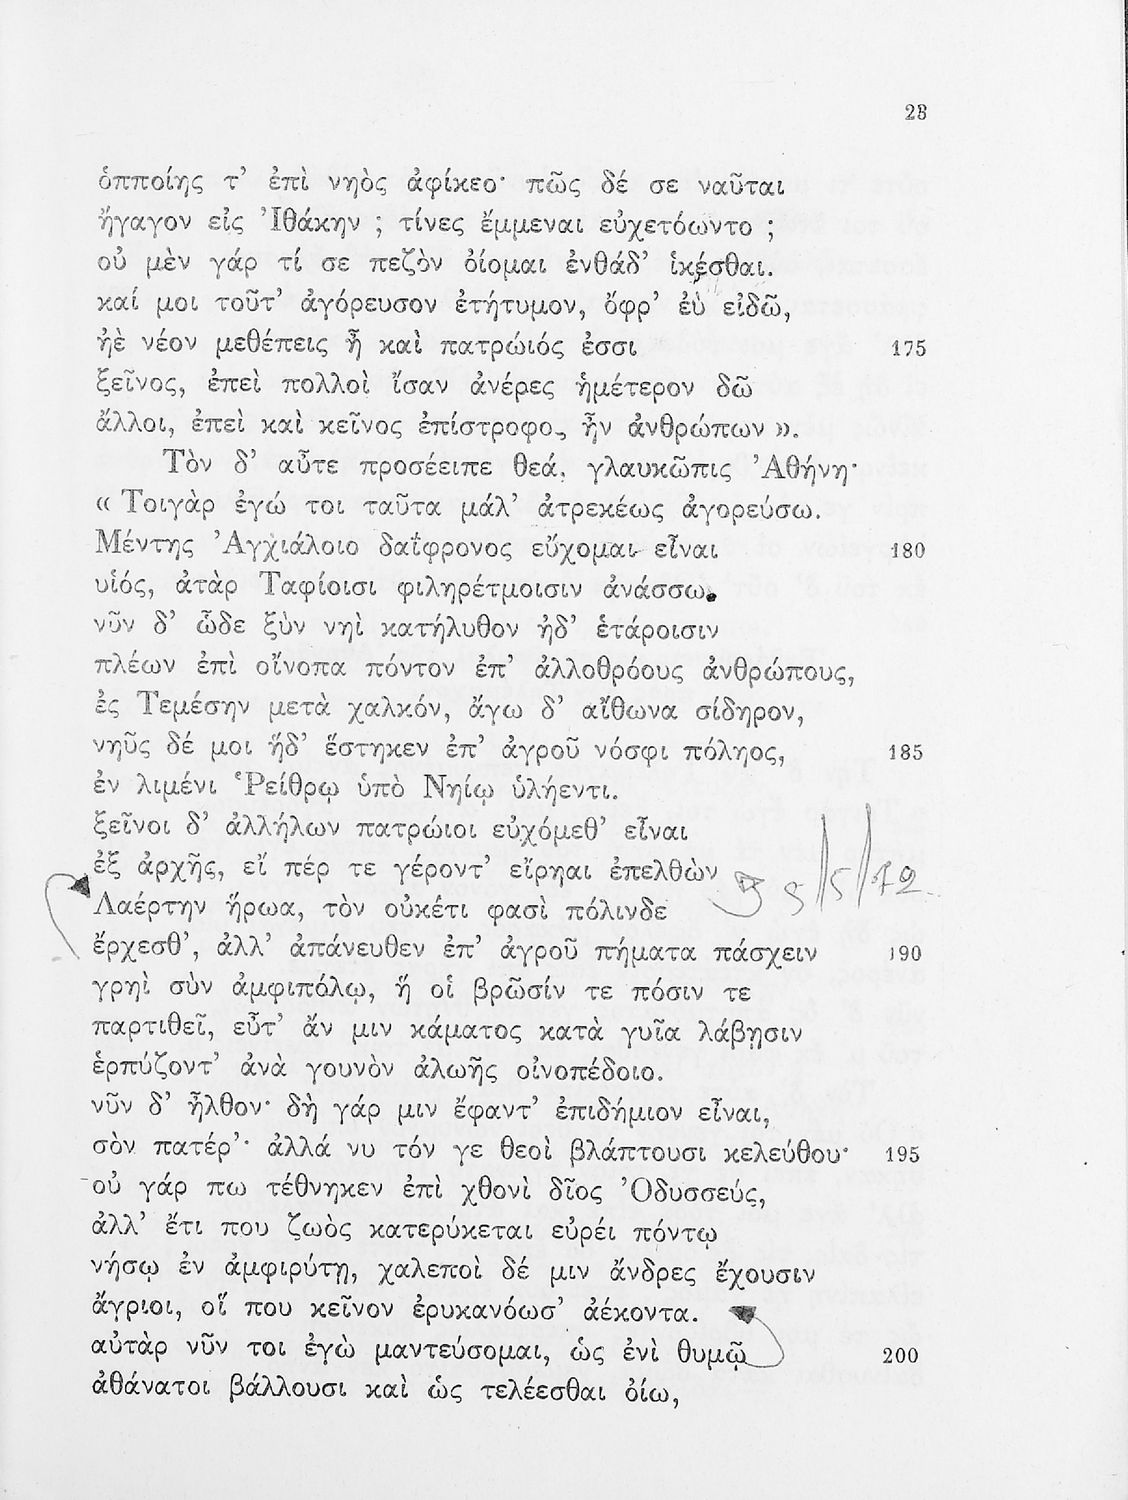 23
ὁπποίης τ’ ἐπὶ νηὸς ἀφίκεο· πῶς δέ σε ναῦται
ἤγαγον εἰς Ἰθάκην ; τίνες ἔμμεναι εὐχετόωντο ;
οὐ μὲν γάρ τί σε πεζὸν ὀίομαι ἐνθάδ’ ἱκέσθαι.
καί μοι τοῦτ’ ἀγόρευσον ἐτήτυμον, ὄφρ’ ἐὺ εἰδῶ,
ἠὲ νέον μεθέπεις ἦ καὶ πατρώιός ἐσσι 175
ξεῖνος, ἐπεὶ πολλοὶ ἴσαν ἀνέρες ἡμέτερον δῶ
ἄλλοι, ἐπεὶ καὶ κεῖνος ἐπίστροφος ἦν ἀνθρώπων ».
Τὸν δ’ αὖτε προσέειπε θεά, γλαυκῶπις Ἀθήνη·
« Τοιγὰρ ἐγώ τοι ταῦτα μάλ’ ἀτρεκέως ἀγορεύσω.
Μέντης Ἀγχιάλοιο δαΐφρονος εὔχομαι εἶναι 180
υἱός, ἀτὰρ Ταφίοισι φιληρέτμοισιν ἀνάσσω.
νῦν δ’ ὧδε ξὺν νηὶ κατήλυθον ἠδ’ ἑτάροισιν
πλέων ἐπὶ οἴνοπα πόντον ἐπ’ ἀλλοθρόους ἀνθρώπους,
ἐς Τεμέσην μετὰ χαλκόν, ἄγω δ’ αἴθωνα σίδηρον,
νηῦς δέ μοι ἥδ’ ἕστηκεν ἐπ’ ἀγροῦ νόσφι πόληος, 185
ἐν λιμένι Ῥείθρῳ ὑπὸ Νηίῳ ὑλήεντι.
ξεῖνοι δ’ ἀλλήλων πατρώιοι εὐχόμεθ’ εἶναι
ἐξ ἀρχῆς, εἴ πέρ τε γέροντ’ εἴρηαι ἐπελθὼν 9/5/72
Λαέρτην ἥρωα, τὸν οὐκέτι φασὶ πόλινδε
ἔρχεσθ’, ἀλλ’ ἀπάνευθεν ἐπ’ ἀγροῦ πήματα πάσχειν 190
γρηὶ σὺν ἀμφιπόλῳ, ἥ οἱ βρῶσίν τε πόσιν τε
παρτιθεῖ, εὖτ’ ἄν μιν κάματος κατὰ γυῖα λάβῃσιν
ἑρπύζοντ’ ἀνὰ γουνὸν ἀλωῆς οἰνοπέδοιο.
νῦν δ’ ἦλθον· δὴ γάρ μιν ἔφαντ’ ἐπιδήμιον εἶναι,
σὸν πατέρ’· ἀλλά νυ τόν γε θεοὶ βλάπτουσι κελεύθου· 195
οὐ γάρ πω τέθνηκεν ἐπὶ χθονὶ δῖος Ὀδυσσεύς,
ἀλλ’ ἔτι που ζωὸς κατερύκεται εὐρέι πόντῳ
νήσῳ ἐν ἀμφιρύτῃ, χαλεποὶ δέ μιν ἄνδρες ἔχουσιν
ἄγριοι, οἵ που κεῖνον ἐρυκανόωσ’ ἀέκοντα.
αὐτὰρ νῦν τοι ἐγὼ μαντεύσομαι, ὡς ἐνὶ θυμῷ 200
ἀθάνατοι βάλλουσι καὶ ὡς τελέεσθαι ὀίω,